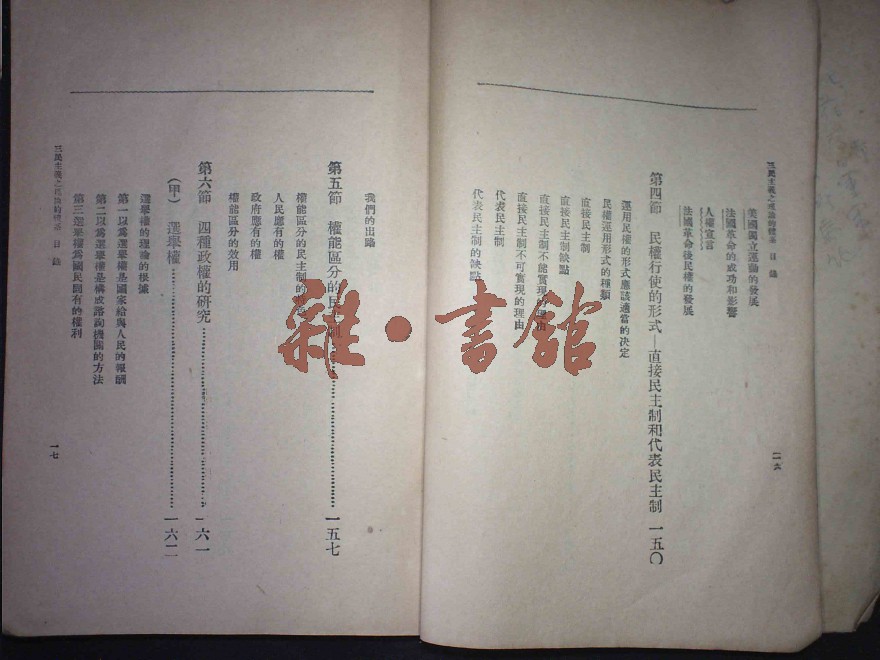 三民主義之理論的體系 目錄
美國獨立運動的發展
法國革命的成功和影響
人權宣言
法國革命後民權的發展
第四節 民權行使的形式—直接民主制和代表民主制 一五〇
運用民權的形式應該適當的決定
民權運用形式的種類
直接民主制
直接民主制缺點
直接民主制不能實現的理由
直接民主制不可實現的理由
代表民主制
代表民主制的缺點
一六
我們的出路
第五節 權能區分的民主制 一五七
權能區分的民主制的
人民應有的權
政府應有的權
權能區分的效用
第六節 四種政權的研究 一六一
（甲） 選舉權 一六二
選舉權的理論的根據
第一以爲選舉權是國家給與人民的報酬
第二以爲選舉權是構成諮詢機關的方法
第三選舉權爲國民固有的權利
三民主義之理論的體系 目錄
一七
雜·書館